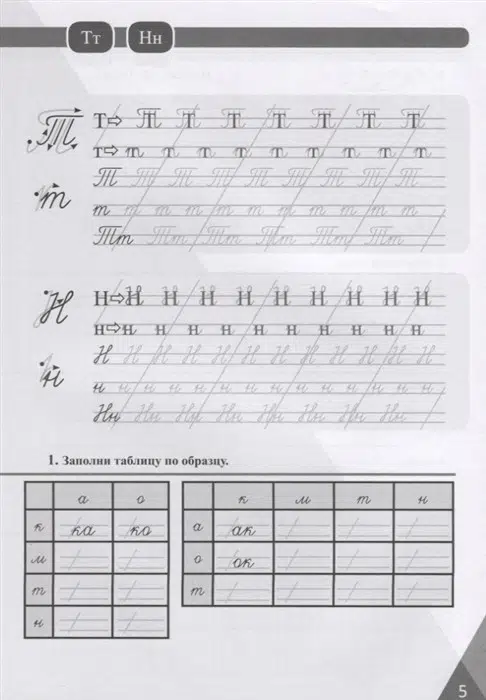 Тт Нн
Т
Т⇨ Т Т Т Т Т Т Т
т⇨ т т т т т т т т т
Т Т Т Т Т Т Т Т Т
т
т т т т т т т т т т т
Тт Тт Тт Тт Тт Тт
Н
Н⇨Н Н Н Н Н Н Н Н Н
н⇨н н н н н н н н н н
Н Н Н Н Н Н Н Н Н Н Н Н
н
н н н н н н н н н н н н н н
Нн Нн Нн Нн Нн Нн Нн Нн
1. Заполни таблицу по образцу.
а о
к ка ко
м
т
н
к м т н
а ак
о ок
т
5